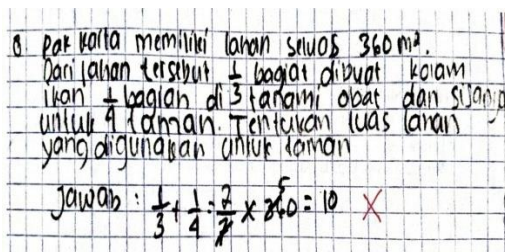 8 Pak Karta memiliki lahan seluas 360 m².
Dari lahan tersebut 1/3 bagiat dibuat kolam
ikan 1/4 bagian ditanami obat dan sisanya
untuk taman. Tentukan luas lahan
yang digunakan untuk taman
Jawab : 1/3 + 1/4 = 2/7 × 360 = 10 ×